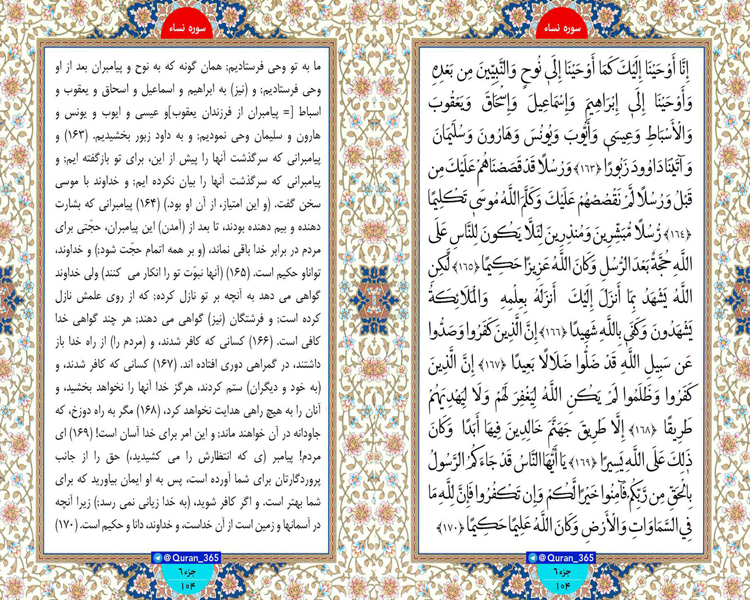 سوره نساء
إِنَّا أَوْحَيْنَا إِلَيْكَ كَمَا أَوْحَيْنَا إِلَىٰ نُوحٍ وَالنَّبِيِّينَ مِن بَعْدِهِ
وَأَوْحَيْنَا إِلَىٰ إِبْرَاهِيمَ وَإِسْمَاعِيلَ وَإِسْحَاقَ وَيَعْقُوبَ
وَالْأَسْبَاطِ وَعِيسَىٰ وَأَيُّوبَ وَيُونُسَ وَهَارُونَ وَسُلَيْمَانَ
وَآتَيْنَا دَاوُودَ زَبُورًا ﴿۱۶۳﴾ وَرُسُلًا قَدْ قَصَصْنَاهُمْ عَلَيْكَ مِن
قَبْلُ وَرُسُلًا لَّمْ نَقْصُصْهُمْ عَلَيْكَ وَكَلَّمَ اللَّهُ مُوسَىٰ تَكْلِيمًا
﴿۱۶۴﴾ رُّسُلًا مُّبَشِّرِينَ وَمُنذِرِينَ لِئَلَّا يَكُونَ لِلنَّاسِ عَلَى
اللَّهِ حُجَّةٌ بَعْدَ الرُّسُلِ وَكَانَ اللَّهُ عَزِيزًا حَكِيمًا ﴿۱۶۵﴾ لَّٰكِنِ
اللَّهُ يَشْهَدُ بِمَا أَنزَلَ إِلَيْكَ أَنزَلَهُ بِعِلْمِهِ وَالْمَلَائِكَةُ
يَشْهَدُونَ وَكَفَىٰ بِاللَّهِ شَهِيدًا ﴿۱۶۶﴾ إِنَّ الَّذِينَ كَفَرُوا وَصَدُّوا
عَن سَبِيلِ اللَّهِ قَدْ ضَلُّوا ضَلَالًا بَعِيدًا ﴿۱۶۷﴾ إِنَّ الَّذِينَ
كَفَرُوا وَظَلَمُوا لَمْ يَكُنِ اللَّهُ لِيَغْفِرَ لَهُمْ وَلَا لِيَهْدِيَهُمْ
طَرِيقًا ﴿۱۶۸﴾ إِلَّا طَرِيقَ جَهَنَّمَ خَالِدِينَ فِيهَا أَبَدًا وَكَانَ
ذَٰلِكَ عَلَى اللَّهِ يَسِيرًا ﴿۱۶۹﴾ يَا أَيُّهَا النَّاسُ قَدْ جَاءَكُمُ الرَّسُولُ
بِالْحَقِّ مِن رَّبِّكُمْ فَآمِنُوا خَيْرًا لَّكُمْ وَإِن تَكْفُرُوا فَإِنَّ لِلَّهِ مَا
فِي السَّمَاوَاتِ وَالْأَرْضِ وَكَانَ اللَّهُ عَلِيمًا حَكِيمًا ﴿۱۷۰﴾
@Quran_365
جزء ۶
۱۰۴
سوره نساء
ما به تو وحی فرستادیم; همان گونه که به نوح و پیامبران بعد از او
وحی فرستادیم; و (نیز) به ابراهیم و اسماعیل و اسحاق و یعقوب و
اسباط [= پیامبران از فرزندان یعقوب]و عیسی و ایوب و یونس و
هارون و سلیمان وحی نمودیم; و به داود زبور بخشیدیم. (۱۶۳) و
پیامبرانی که سرگذشت آنها را پیش از این، برای تو بازگفته ایم; و
پیامبرانی که سرگذشت آنها را بیان نکرده ایم; و خداوند با موسی
سخن گفت. (و این امتیاز، از آن او بود.) (۱۶۴) پیامبرانی که بشارت
دهنده و بیم دهنده بودند، تا بعد از (آمدن) این پیامبران، حجّتی برای
مردم در برابر خدا باقی نماند، (و بر همه اتمام حجت شود;) و خداوند،
تواناو حکیم است. (۱۶۵) (آنها نبوّت تو را انکار می کنند) ولی خداوند
گواهی می دهد به آنچه بر تو نازل کرده; که از روی علمش نازل
کرده است; و فرشتگان (نیز) گواهی می دهند; هر چند گواهی خدا
کافی است. (۱۶۶) کسانی که کافر شدند، و (مردم را) از راه خدا باز
داشتند، در گمراهی دوری افتاده اند. (۱۶۷) کسانی که کافر شدند، و
(به خود و دیگران) ستم کردند، هرگز خدا آنها را نخواهد بخشید، و
آنان را به هیچ راهی هدایت نخواهد کرد، (۱۶۸) مگر به راه دوزخ، که
جاودانه در آن خواهند ماند; و این امر برای خدا آسان است! (۱۶۹) ای
مردم! پیامبر (ی که انتظارش را می کشیدید،) حق را از جانب
پروردگارتان برای شما آورده است، پس به او ایمان بیاورید که برای
شما بهتر است. و اگر کافر شوید، (به خدا زیانی نمی رسد;) زیرا آنچه
در آسمانها و زمین است از آن خداست، و خداوند، دانا و حکیم است. (۱۷۰)
@Quran_365
جزء ۶
۱۰۴